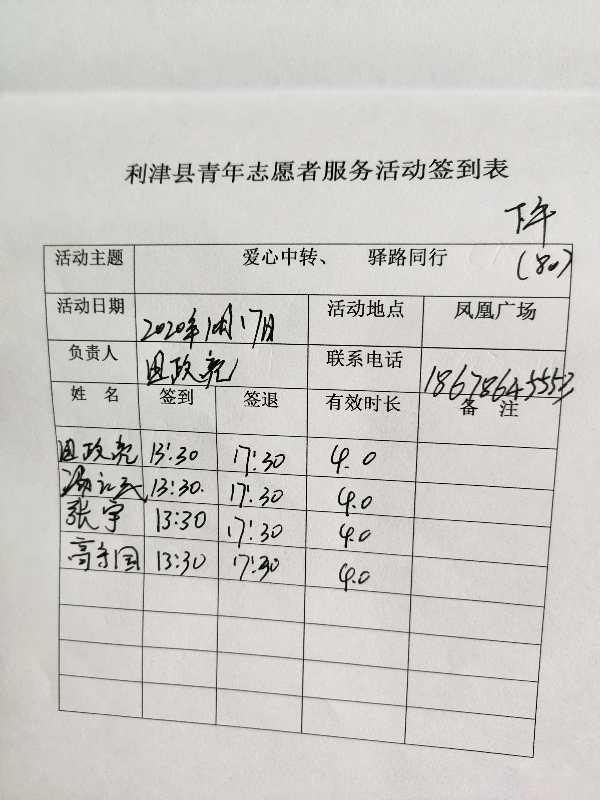 利津县青年志愿者服务活动签到表
下午
(80)
活动主题 爱心中转、 驿路同行
活动日期 2020年10月17日 活动地点 凤凰广场
负责人 田政亮 联系电话 18678645553
姓 名 签到 签退 有效时长 备 注
田政亮 13:30 17:30 4.0
13:30. 17:30 4.0
张宇 13:30 17:30 4.0
高守国 13:30 17:30 4.0